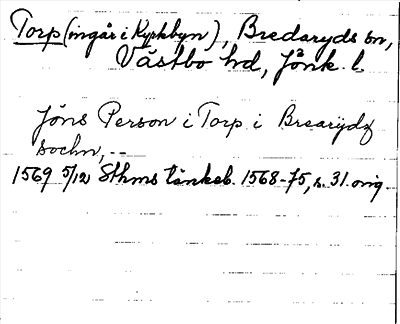 Torp (ingår i Kyrkbyn), Bredaryds sn,
Västbo hd, Jönk. l.
Jöns Person i Torp i Brearydz
sochn, --
1569 5/12 Sthms tänkeb. 1568-75, s. 31. orig.